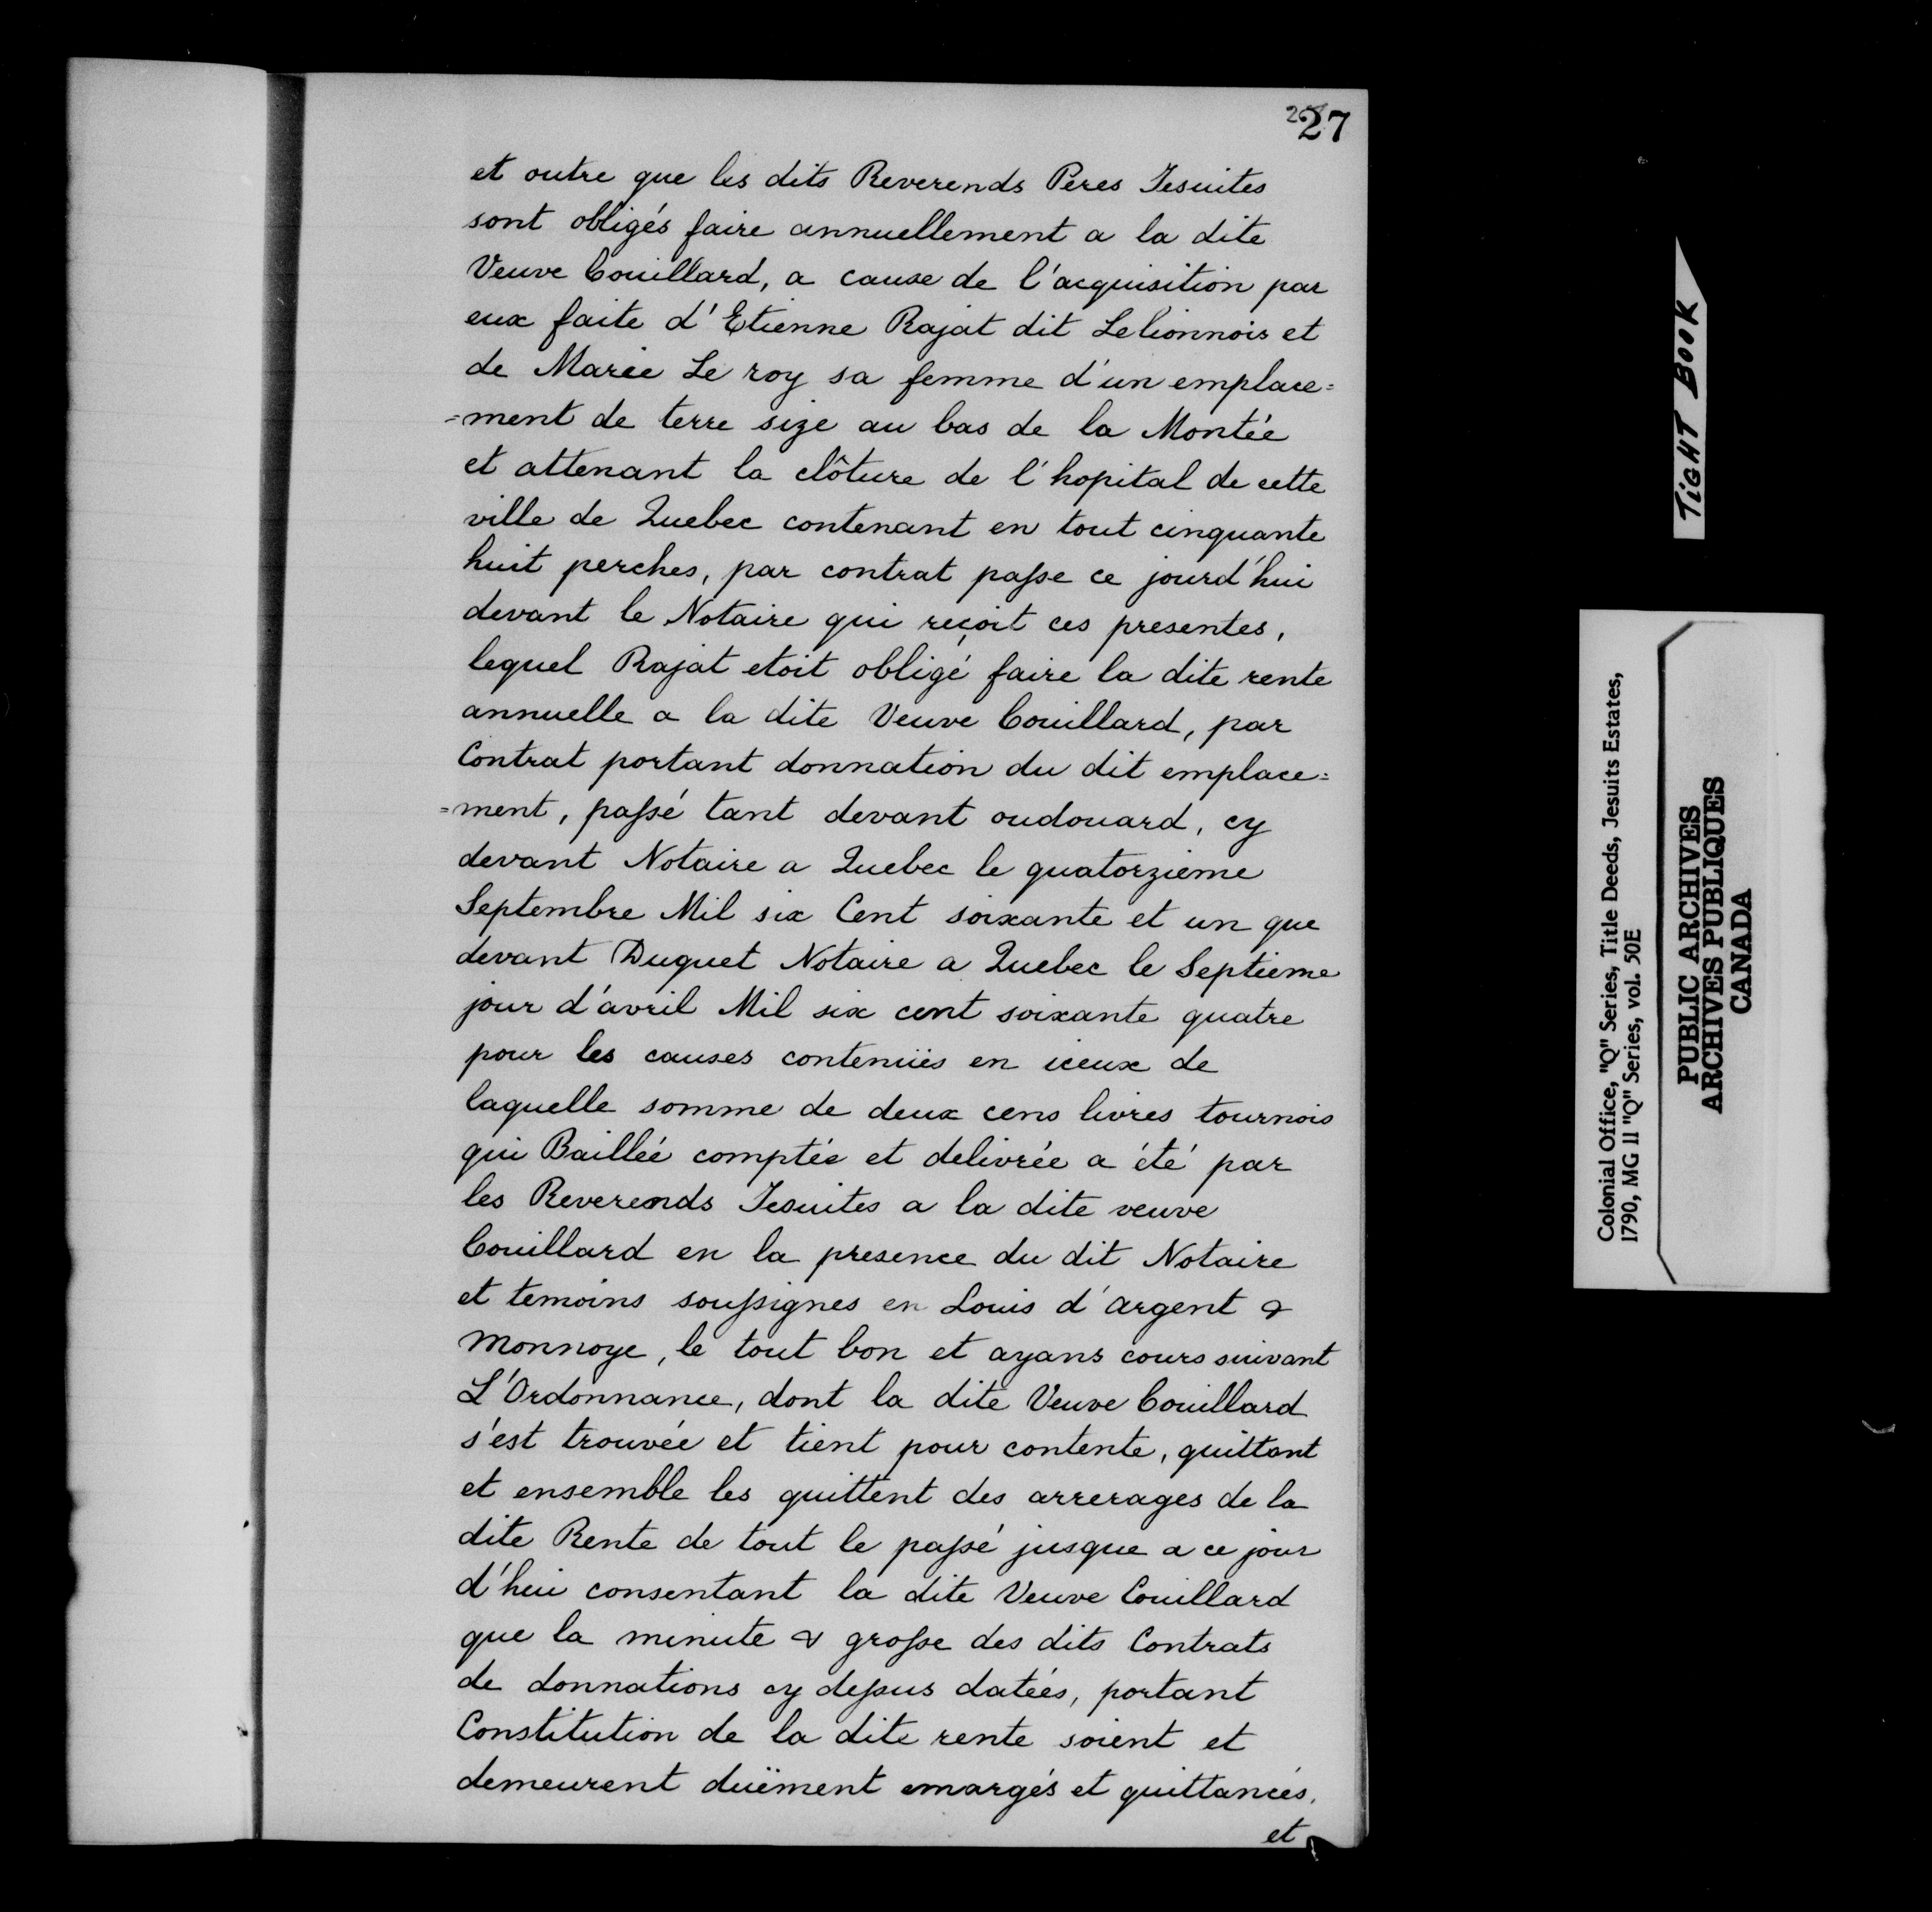 27
et outre que les dits Reverends Peres Jesuites
sont obligés faire annuellement a la dite
Veuve Couillard, a cause de l'acquisition par
eux faite d'Etienne Rajat dit Lelionnois et
de Marie Le roy sa femme d'un emplace=
=ment de terre size au bas de la Montée
et attenant la clôture de l'hopital de cette
ville de Quebec contenant en tout cinquante
huit perches, par contrat passe ce jourd'hui
devant le Notaire qui reçoit ces presentes,
lequel Rajat etoit obligé faire la dite rente
annuelle a la dite Veuve Couillard, par
Contrat portant donnation du dit emplace=
=ment, passé tant devant oudouard, cy
devant Notaire a Quebec le quatorzieme
Septembre Mil six Cent soixante et un que
devant Duquet Notaire a Quebec le Septieme
jour d'avril Mil six cent soixante quatre
pour les causes contenües en iceux de
laquelle somme de deux cens livres tournois
qui Baillée comptée et delivrée a été par
les Reverends Jesuites a la dite veuve
Couillard en la presence du dit Notaire
et temoins soussignes en Louis d'argent &
Monnoye, le tout bon et ayans cours suivant
L'Ordonnance, dont la dite Veuve Couillard
s'est trouvée et tient pour contente, quittant
et ensemble les quittent des arrerages de la
dite Rente de tout le passé jusque a ce jour
d'hui consentant la dite Veuve Couillard
que la minute & grosse des dits Contrats
de donnations cy dessus datées, portant
Constitution de la dite rente soient et
demeurent duëment emargés et quittancés,
et
TIGHT BOOK
Colonial Office, "Q" Series, Title Deeds, Jesuits Estates,
1790, MG 11 "Q" Series, vol. 50E
PUBLIC ARCHIVES
ARCHIVES PUBLIQUES
CANADA